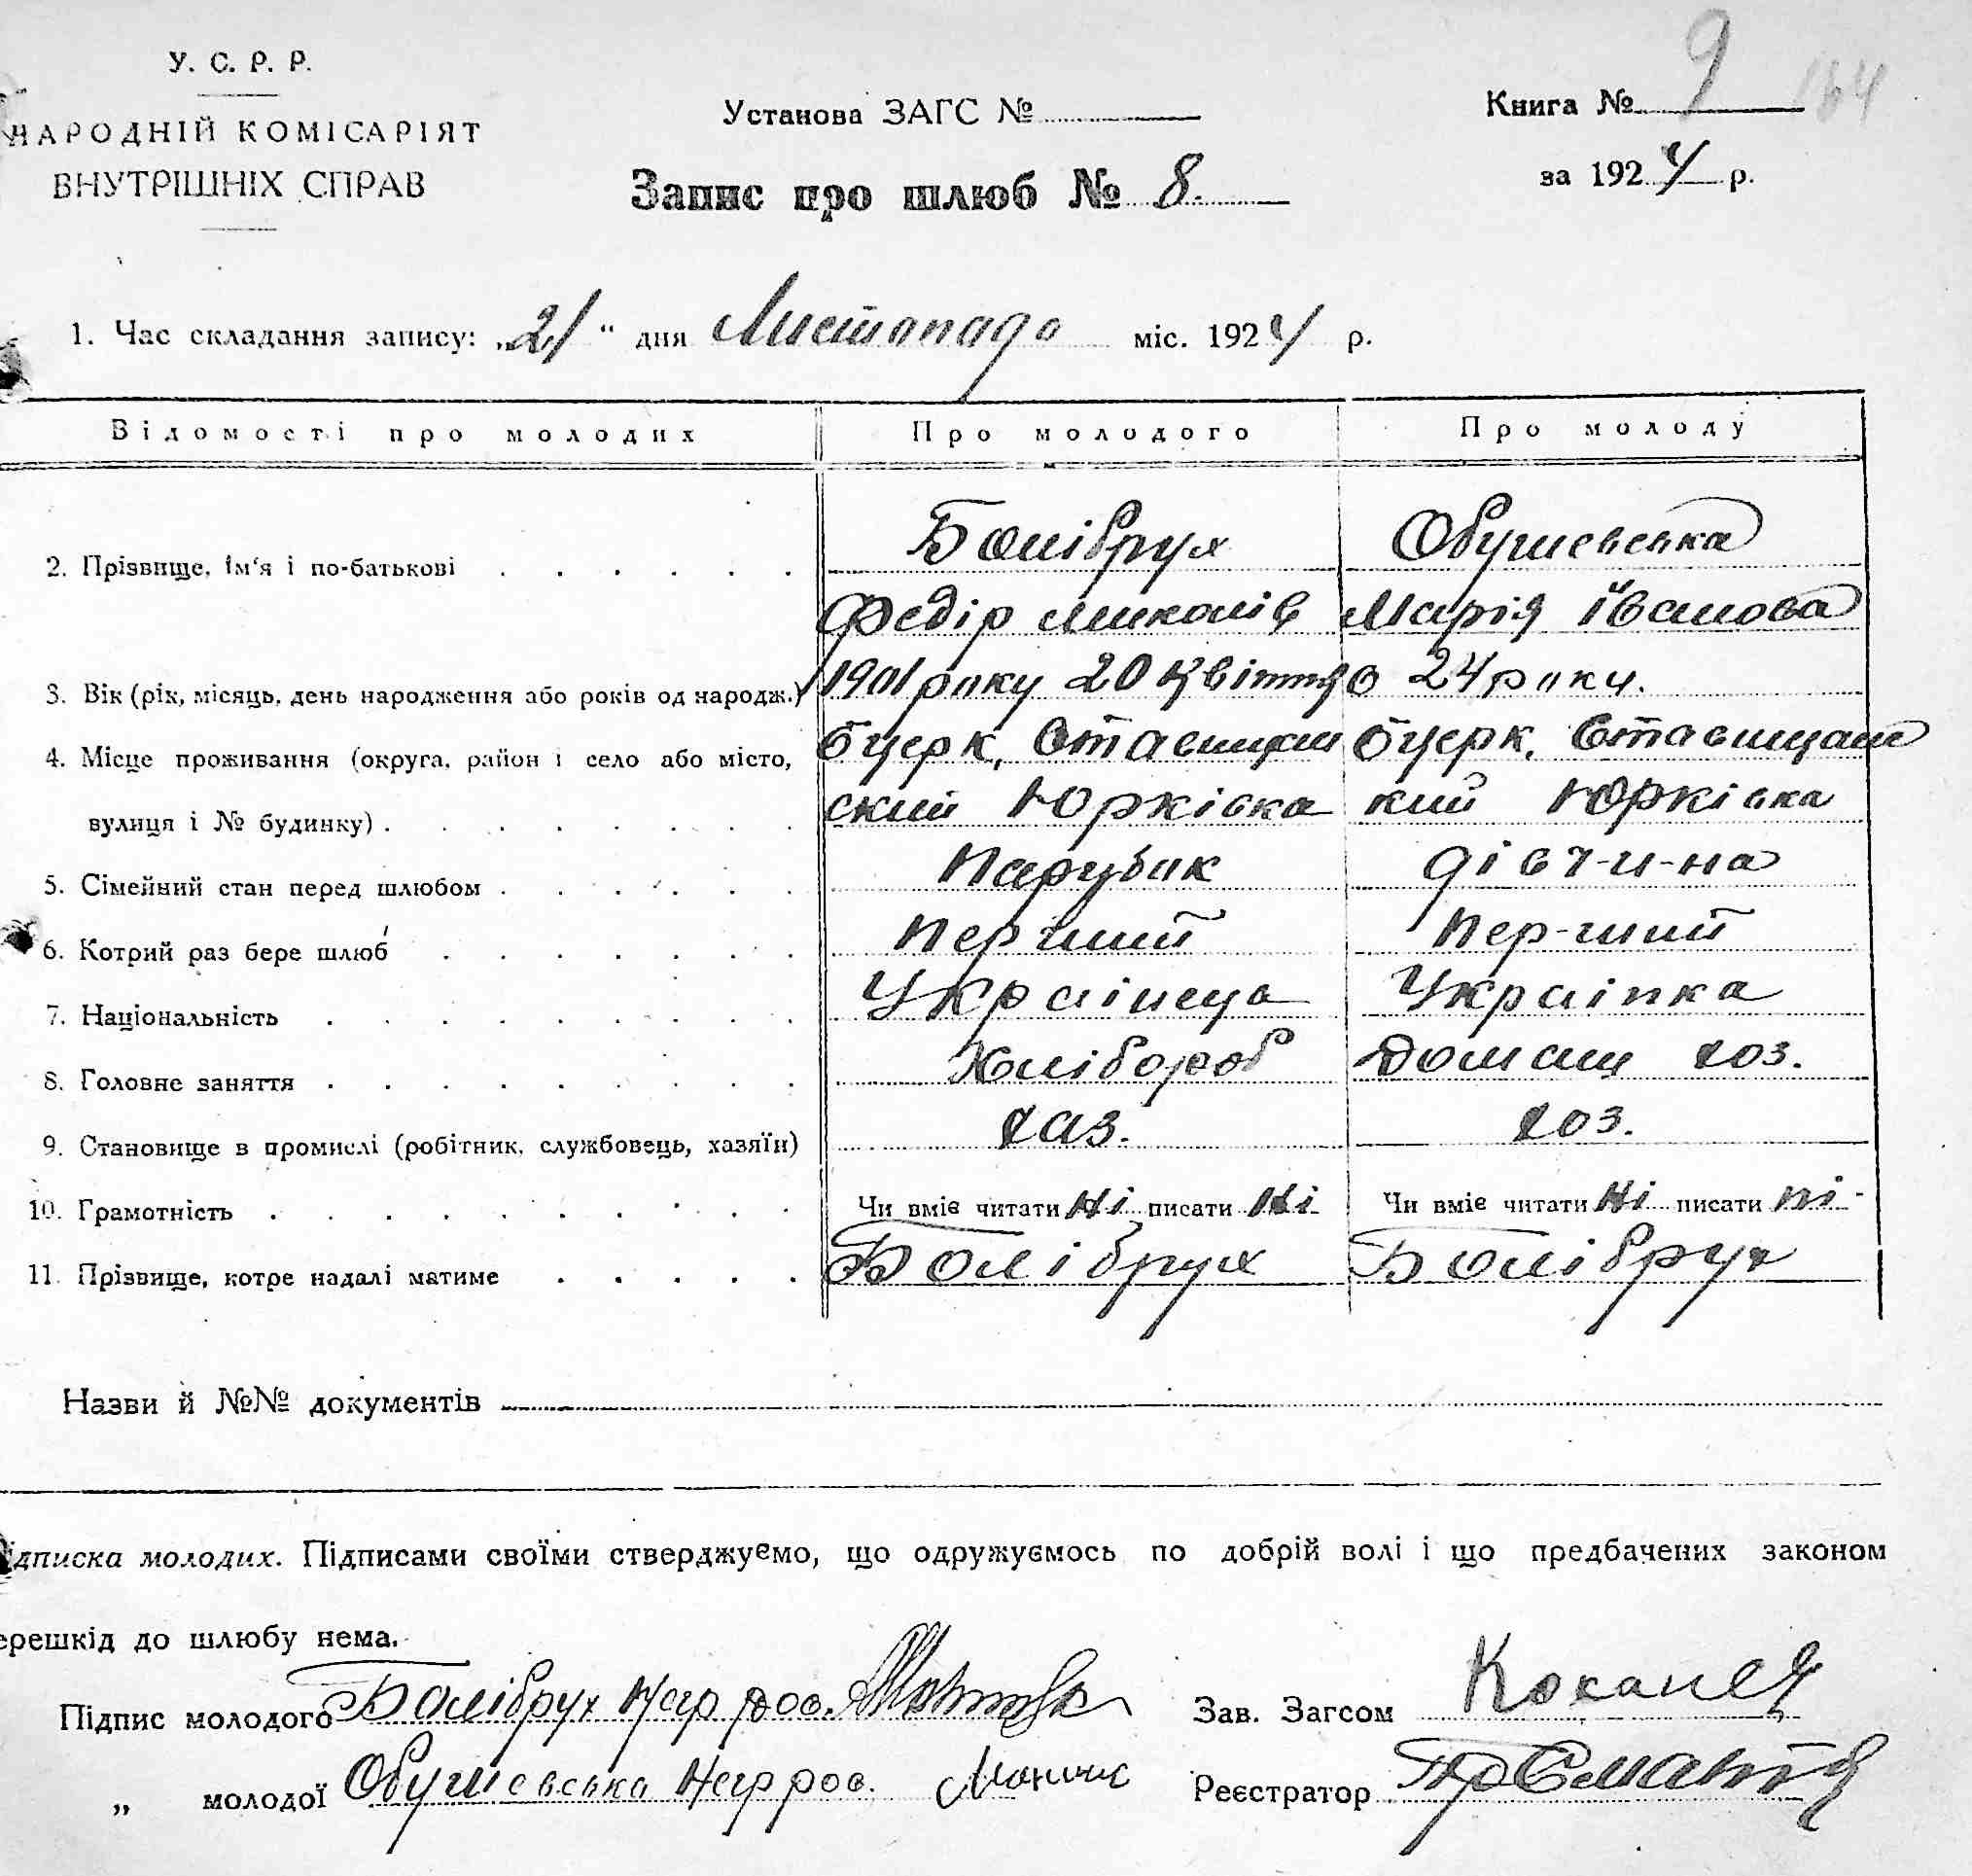 У. С. Р. Р.
НАРОДНІЙ КОМІСАРІЯТ
ВНУТРІШНІХ СПРАВ
Установа ЗАГС №
Запис про шлюб № 8.
Книга № 9 164
за 1924 р.
1. Час складання запису: „21“ дня Листопада міс. 1924 р.
Відомості про молодих Про молодого Про молоду
2. Прізвище, ім'я і по-батькові Болібрух Обушевська
Федір Миколів Марія Іванова
3. Вік (рік, місяць, день народження або років од народж.) 1901 року 20 Квіття 24 роки.
4. Місце проживання (округа, район і село або місто, Бцерк. Ставищан Бцерк. Ставищанс
вулиця і № будинку) ский Юрківка кий Юрківка
5. Сімейний стан перед шлюбом Парубик дівчина
6. Котрий раз бере шлюб Перший Перший
7. Національність Українець Українка
8. Головне заняття Хлібороб Домашн хоз.
9. Становище в промислі (робітник, службовець, хазяїн) хаз. хоз.
10. Грамотність Чи вміє читати Ні писати Ні Чи вміє читати Ні писати ні -
11. Прізвище, котре надалі матиме Болібрух Болібрух
Назви й №№ документів
ідписка молодих. Підписами своїми стверджуємо, що одружуємось по добрій волі і що предбачених законом
ерешкід до шлюбу нема.
Підпис молодого Болібрух Негр рос. Зав. Загсом
„ молодої Обушевська Негр рос. Реєстратор